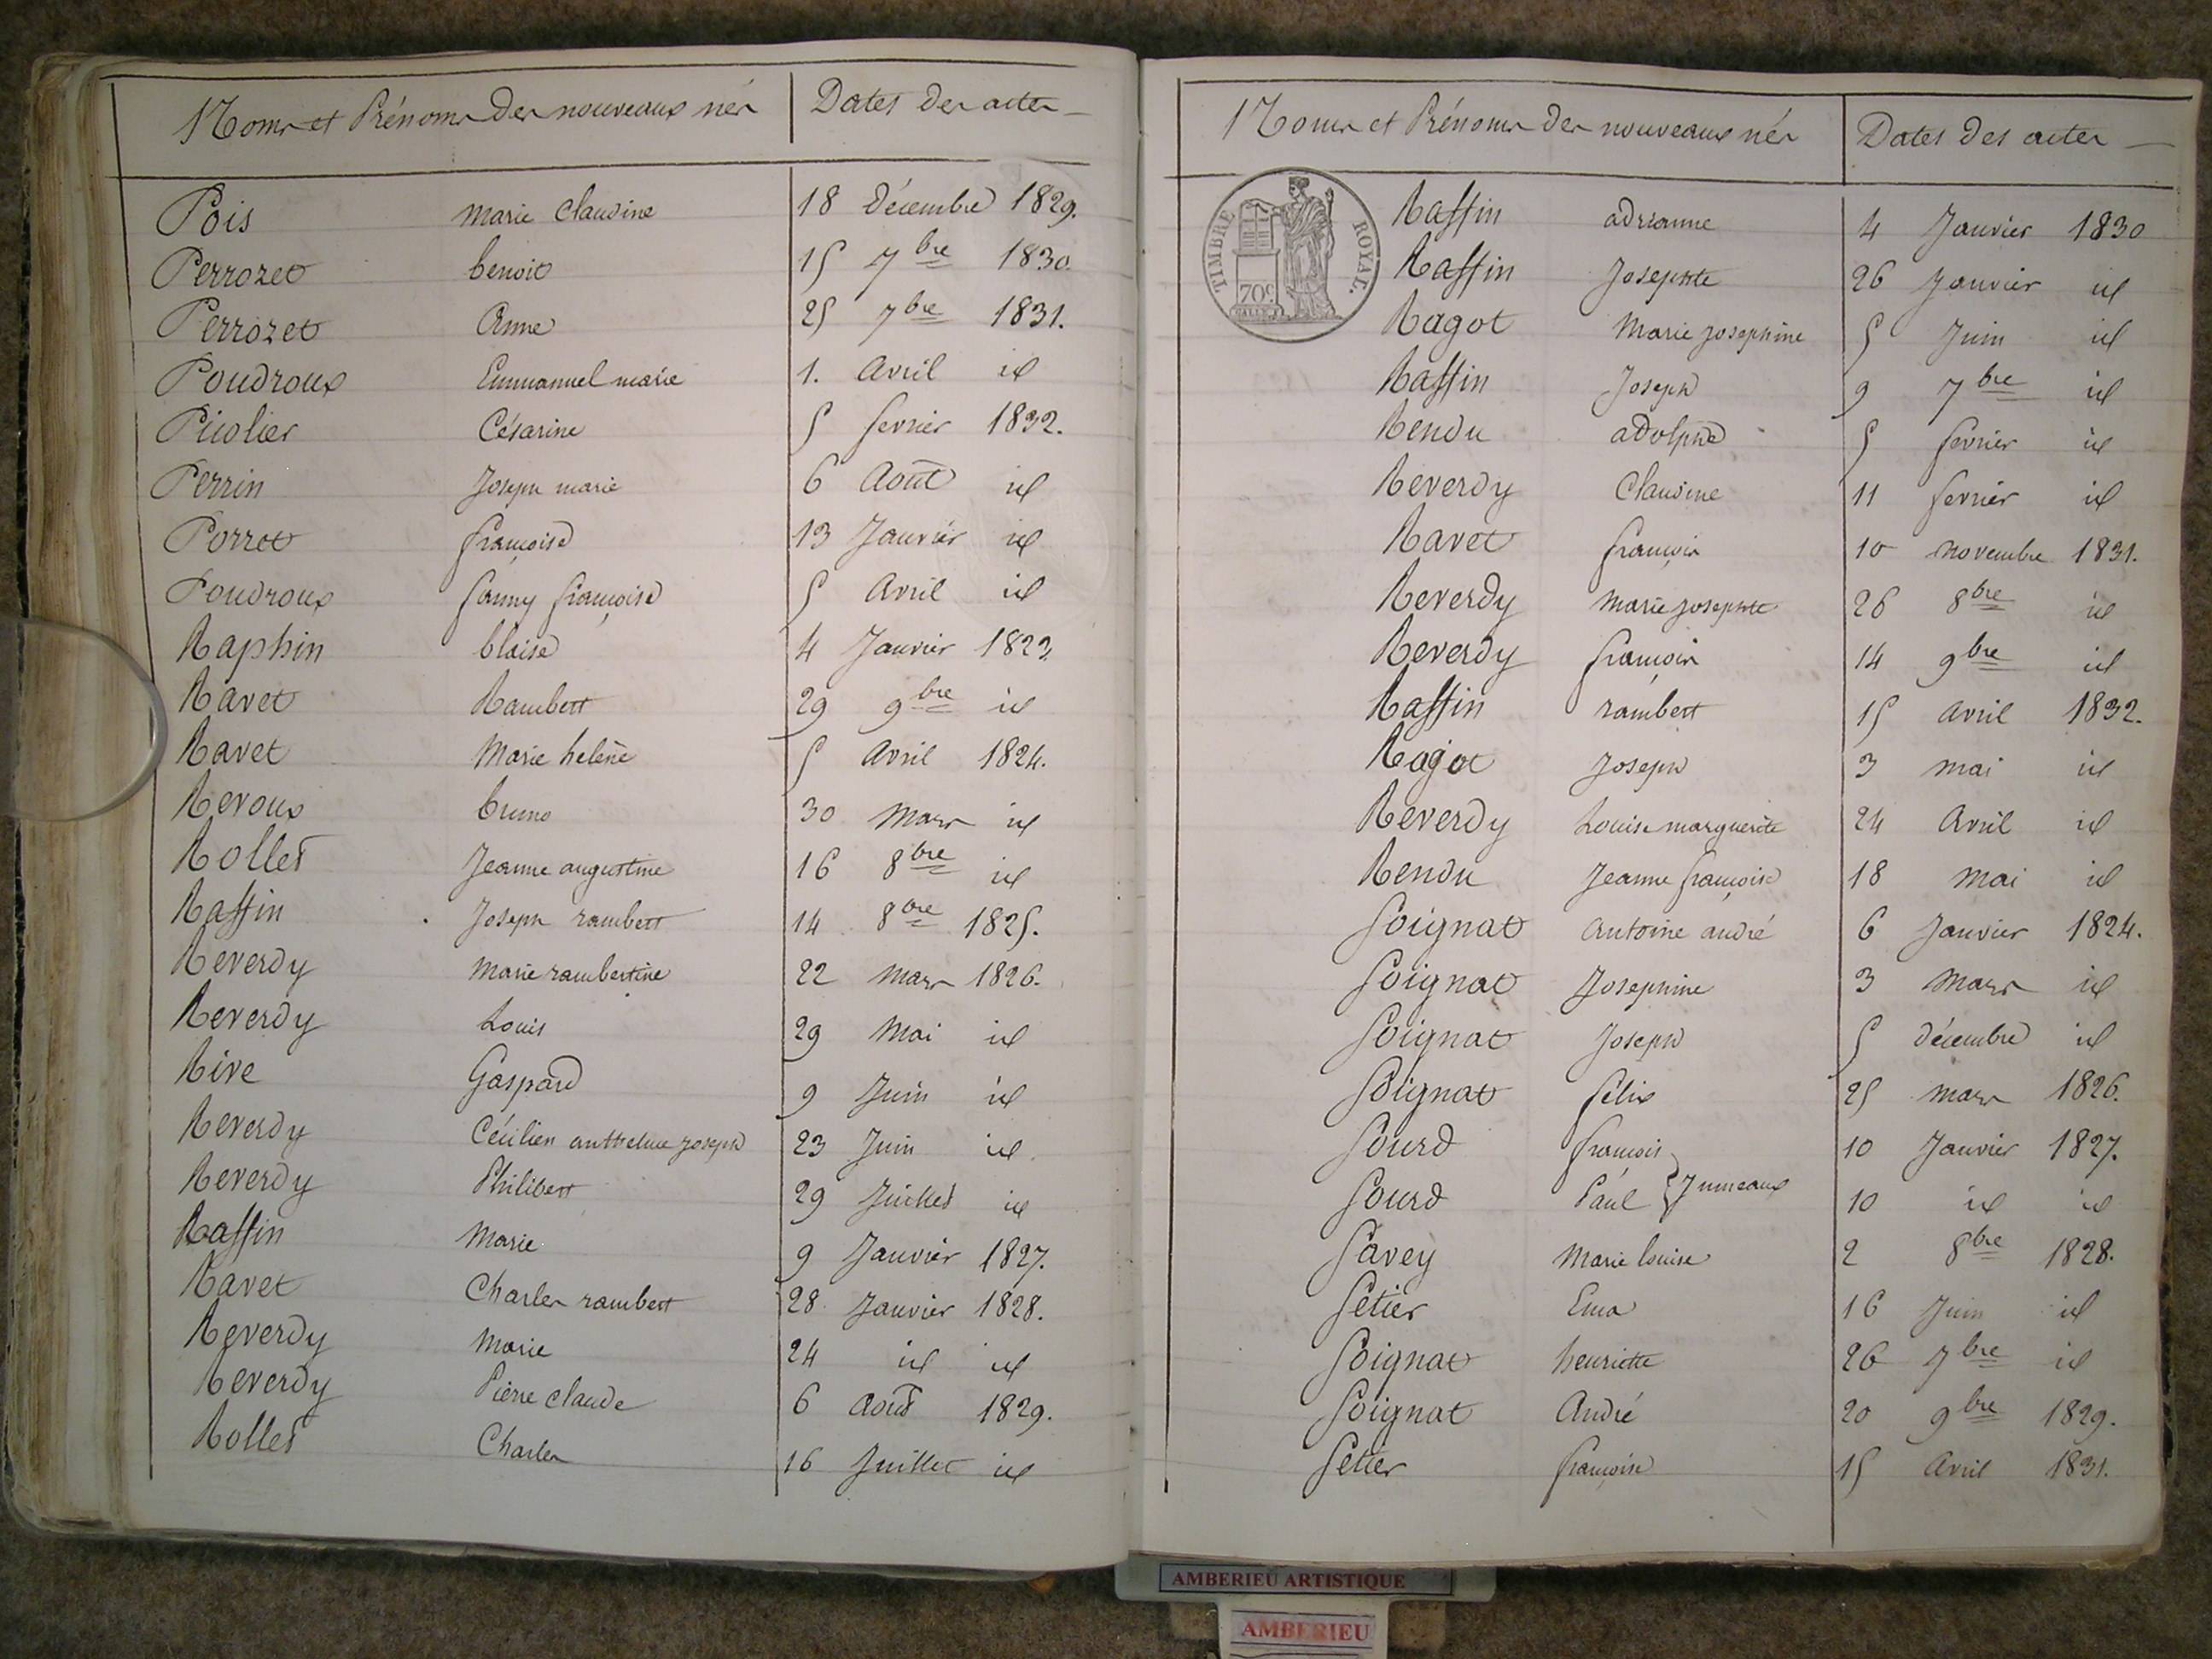 Noms et Prénoms des nouveaux nés Dates des actes
Pois Marie Claudine 18 Décembre 1829.
Perrozet benoit 15 7bre 1830.
Perrozet Anne 25 7bre 1831.
Poudroux Emmanuel marie 1. Avril id
Picolier Césarine 5 fevrier 1832.
Perrin Joseph marie 6 Août id
Porret françoise 13 Janvier id
Poudroux fanny françoise 5 Avril id
Raphin blaise 4 Janvier 1823.
Ravet Rambert 29 9bre id
Ravet Marie helène 5 Avril 1824.
Revoux bruno 30 Mars id
Rollet Jeanne augustine 16 8bre id
Raffin Joseph rambert 14 8bre 1825.
Reverdy Marie rambertine 22 Mars 1826.
Reverdy Louis 29 Mai id
Rive Gaspard 9 Juin id
Reverdy Cécilien anthelme joseph 23 Juin id.
Reverdy Philibert 29 Juillet id
Raffin Marie 9 Janvier 1827.
Ravet Charles rambert 28 Janvier 1828.
Reverdy Marie 24 id id
Reverdy Pierre claude 6 Août 1829.
Rollet Charles 16 Juillet id
Noms et Prénoms des nouveaux nés Dates des actes
TIMBRE ROYAL.
70c.
Raffin adrianne 4 Janvier 1830
Raffin Josephte 26 Janvier id
Ragot Marie josephine 5 Juin id
Raffin Joseph 9 7bre id
Rendu adolphe 5 fevrier id
Reverdy Claudine 11 fevrier id
Ravet françois 10 novembre 1831.
Reverdy Marie josephte 26 8bre id
Reverdy françois 14 9bre id
Raffin rambert 15 Avril 1832.
Ragot Joseph 3 mai id
Reverdy Louise marguerite 24 Avril id
Rendu Jeanne françoise 18 Mai id
Soignat Antoine andré 6 Janvier 1824.
Soignat Josephine 3 Mars id
Soignat Joseph 5 décembre id
Soignat félix 25 mars 1826.
Sourd françois 10 Janvier 1827.
Sourd Paul } Jumeaux 10 id id
Savey Marie louise 2 8bre 1828.
Setier Ema 16 Juin id
Soignat henriette 26 7bre id
Soignat André 20 9bre 1829.
Setier françoise 15 Avril 1831.
AMBERIEU ARTISTIQUE
AMBERIEU